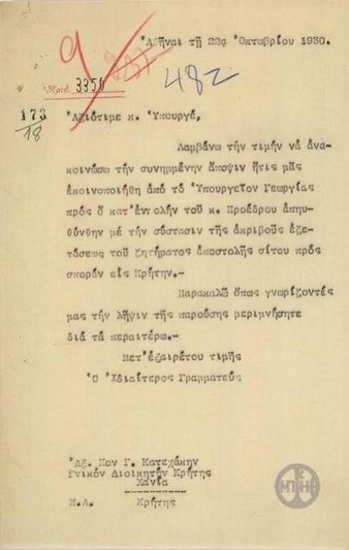 Ἀθῆναι τῇ 22ᾳ Ὀκτωβρίου 1930.
9
482
Ἀριθ. 3350
173
18
Ἀξιότιμε κ. Ὑπουργέ,
Λαμβάνω τὴν τιμήν νὰ ἀνα-
κοινώσω τὴν συνημμένην ἄποψιν ἥτις μᾶς
ἐκοινοποιήθη ἀπὸ τὸ Ὑπουργεῖον Γεωργίας
πρὸς ὅ κατ'ἐντολήν τοῦ κ. Προέδρου ἀπηυ-
θύνθην μὲ τὴν σύστασιν τῆς ἀκριβοῦς ἐξε-
τάσεως τοῦ ζητήματος ἀποστολῆς σίτου πρὸς
σποράν εἰς Κρήτην.-
Παρακαλῶ ὅπως γνωρίζοντές
μας τὴν λῆψιν τῆς παρούσης μεριμνήσητε
διὰ τὰ περαιτέρω.-
Μετ'ἐξαιρέτου τιμῆς
Ὁ Ἰδιαίτερος Γραμματεύς
Ἀξ. Κον Γ. Κατεχάκην
Γνικόν Διοικητήν Κρήτης
Χανία
Μ.Λ. Κρήτης